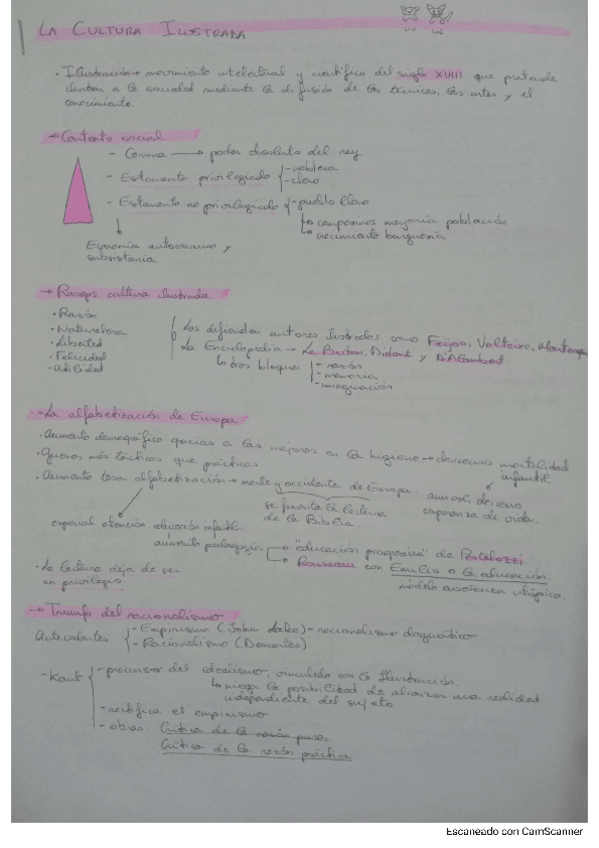 LA CULTURA ILUSTRADA
· Ilustración → movimiento intelectual y científico del siglo XVIII que pretende
ilustrar a la sociedad mediante la difusión de las técnicas, las artes y el
conocimiento.
→ Contexto social
- Corona → poder absoluto del rey
- Estamento privilegiado - nobleza
- clero
- Estamento no privilegiado - pueblo llano
↳ campesinos mayoría población
↳ crecimiento burguesía
Economía autoconsumo y
subsistencia
→ Rasgos cultura ilustrada
· Razón
· Naturaleza
· Libertad
· Felicidad
· Utilidad
Las difundía autores ilustrados como Feijoo, Voltaire,
La Enciclopedia → Le Breton, Diderot y D'Alembert
↳ tres bloques - razón
- memoria
- imaginación
→ La alfabetización de Europa
· Aumento demográfico gracias a las mejoras en la higiene → descenso mortalidad
infantil
· Queros más teóricos que prácticos
· Aumento tasa alfabetización → norte y occidente de Europa
aumenta
esperanza de vida.
se permite la lectura
de la Biblia.
especial atención educación infantil
aumento pedagogía → "educación progresiva" de Pestalozzi
→ Rousseau con Emilio o la educación
modelo enseñanza utópico.
· La lectura deja de ser
un privilegio
→ Triunfo del racionalismo
Antecedentes - Empirismo (John Locke) - racionalismo dogmático
- Racionalismo (Descartes)
- Kant - precursor del idealismo, vinculado con la Ilustración.
↳ niega la posibilidad de alcanzar una realidad
independiente del sujeto.
- rectifica el empirismo
- obras: Crítica de la razón pura
Crítica de la razón práctica
Escaneado con CamScanner